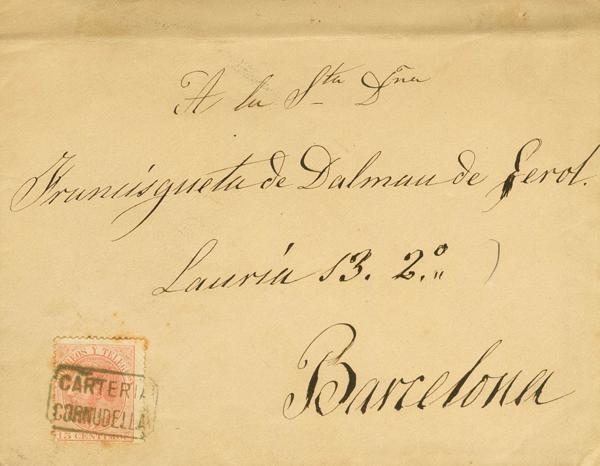 A la Sta Dña
Francisqueta de Dalmau de Gerol.
Lauria 13. 2.º
Barcelona
CORREOS Y TELEG
CARTERIA
CORNUDELLA
15 CENTIMOS